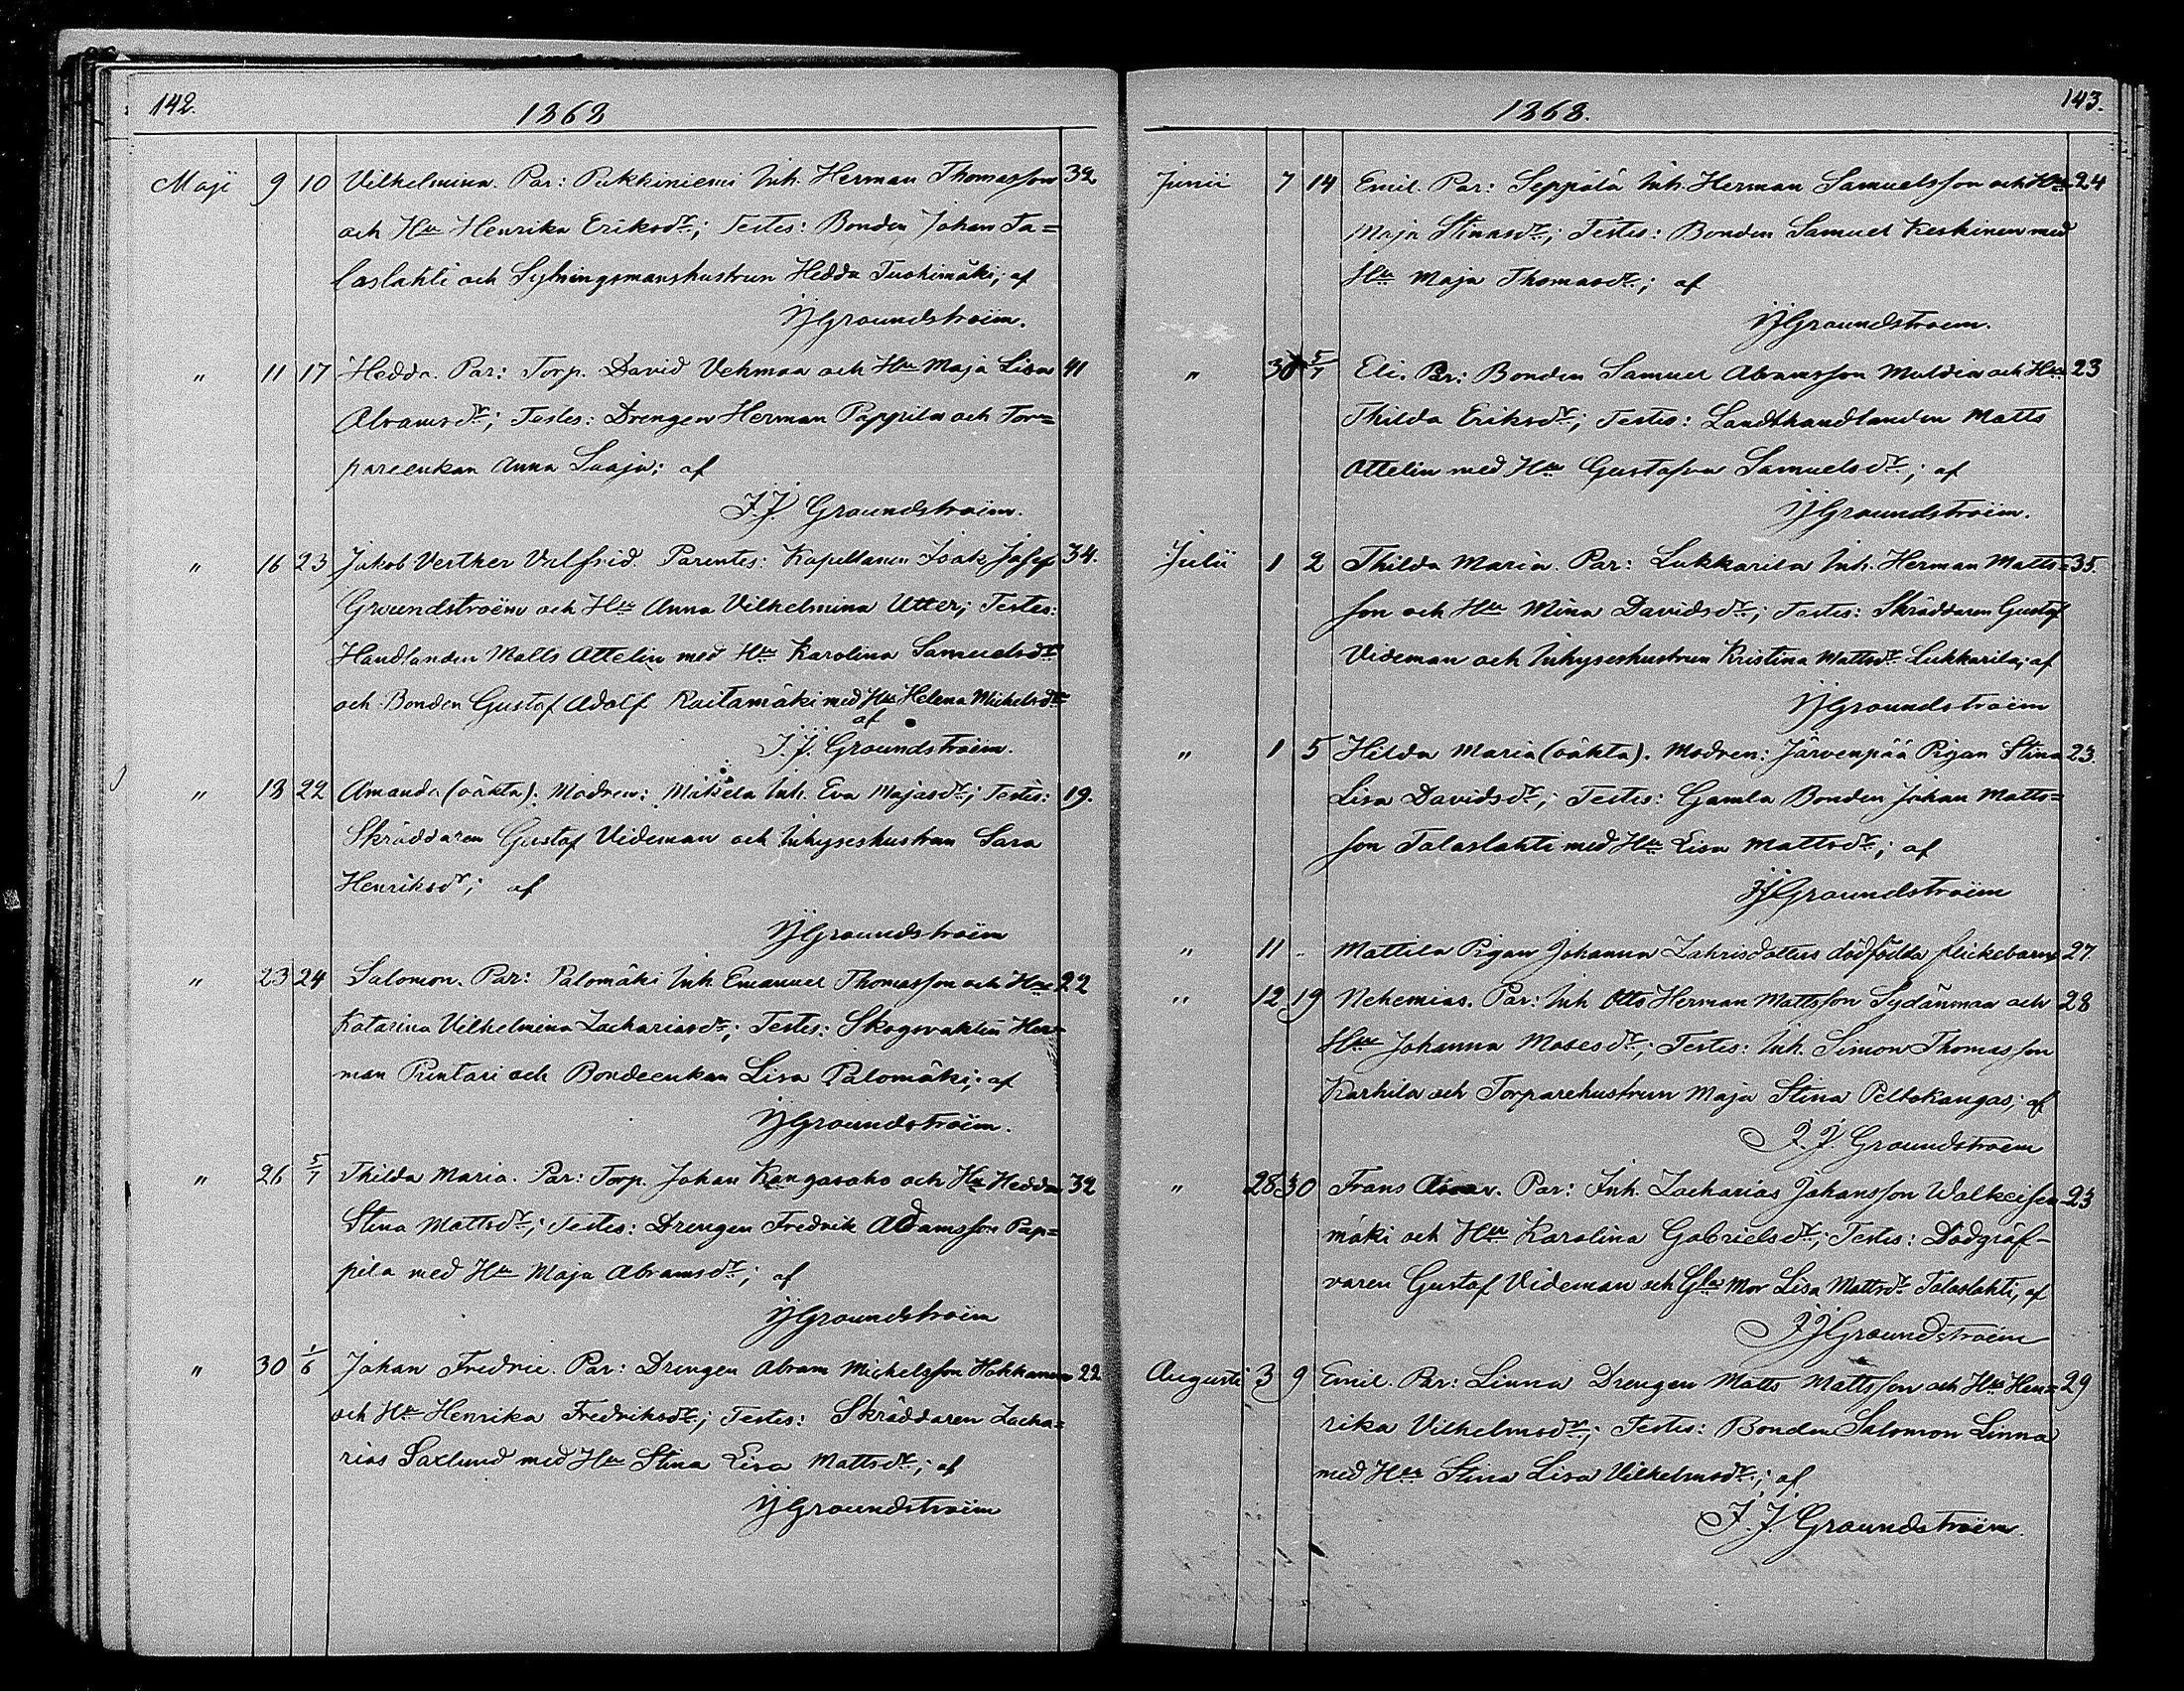 142.
1868
Maji 9 10 Vilhelmina. Par: Pukkiniemi Inh. Herman Thomasson 32
och Hu Henrika Eriksdr; Testes: Bonden Johan Ta=
laslahti och Sytningsmanshustrun Hedda Tuohimäki; af
IJGroundstroëm.
" 11 17 Hedda. Par: Torp. David Vehmaa och Hu Maja Lisa 41
Abramsdr; Testes: Drengen Herman Pappila och Tor=
pareenkan Anna Suoja; af
I.J. Groundstroëm.
" 16 23 Jakob Verther Valfrid. Parentes: Kapellanen Isak Josef 34.
Groundstroëm och Hu Anna Vilhelmina Utter; Testes:
Handlanden Matts Ottelin med Hu Karolina Samuelsdr
och Bonden Gustaf Adolf Raitamäki med Hu Helena Michelsdr
af
I.J. Groundstroëm.
" 18 22 Amanda (oäkta). Modren: Mikkela Inh. Eva Majasdr; Testes: 19.
Skräddaren Gustaf Videman och Inhyseshustrun Sara
Henriksdr; af
IJGroundstroëm
" 23 24 Salomon. Par: Palomäki Inh. Emanuel Thomasson och Hu 22
Katarina Vilhelmina Zachariasdr; Testes: Skogsvaktin Her=
man Puntari och Bondeenkan Lisa Palomäki; af
IJGroundstroëm.
" 26 5/7 Thilda Maria. Par: Torp. Johan Kangasaho och Hu Hedda 32
Stina Mattsdr; Testes: Drengen Fredrik Adamsson Pap=
pila med Hu Maja Abramsdr; af
IJGroundstroëm
" 30 1/6 Johan Fredric. Par: Drengen Abram Michelsson Hakkanen 22
och Hu Henrika Fredriksdr; Testes: Skräddaren Zacha=
rias Saxlund med Hu Stina Lisa Mattsdr; af
IJGroundstroëm
143.
1868.
Junii 7 14 Emil. Par: Seppälä Inh. Herman Samuelsson och Hu 24
Maja Stinasdr; Testes: Bonden Samuel Keskinen med
Hu Maja Thomasdr; af
IJGroundstroem.
" 30 5/7 Eli. Par: Bonden Samuel Abramsson Muldia och Hu 23
Thilda Eriksdr; Testes: Landthandlanden Matts
Ottelin med Hu Gustafva Samuelsdr; af
IJGroundstroëm.
Julii 1 2 Thilda Maria. Par: Lukkarila Inh. Herman Matts= 35.
son och Hu Mina Davidsdr; Testes: Skräddaren Gustaf
Videman och Inhyseshustrun Kristina Mattsdr Lukkarila; af
IJGroundstroëm
" 1 5 Hilda Maria (oäkta). Modren: Järvenpää Pigan Stina 23.
Lisa Davidsdr; Testes: Gamla Bonden Johan Matts=
son Talaslahti med Hu Lisa Mattsdr; af
IJGroundstroëm
" 11 " Mattila Pigan Johanna Zakrisdotters dödfödda flickebarn 27.
" 12 19 Nehemias. Par: Inh Otto Herman Mattsson Sydänmaa och 28
Hu Johanna Mosesdr; Testes: Inh. Simon Thomasson
Karhila och Torparehustrun Maja Stina Peltokangas; af
I.J. Groundstroëm
" 28 30 Frans Oscar. Par: Inh. Zacharias Johansson Walkeisen 23
mäki och Hu Karolina Gabrielsdr; Testes: Dödgräf-
varen Gustaf Videman och Gla Mor Lisa Mattsdr Talaslahti, af
IJGroundstroëm
Augusti 3 9 Emil. Par: Linna Drengen Matts Mattsson och Hu Hen= 29
rika Vilhelmsdr; Testes: Bonden Salomon Linna
med Hu Stina Lisa Vilhelmsdr; af
I.J. Groundstroëm.